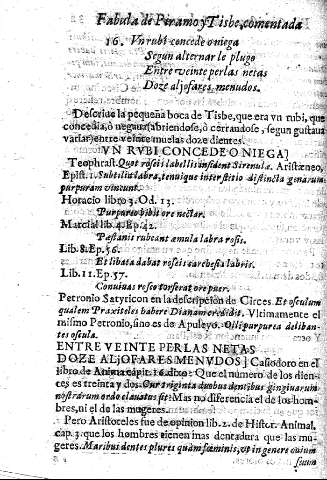 Fabula de Piramo y Tisbe, comentada
16. Vn rubi concede o niega
Segun alternar le plugo
Entre veinte perlas netas
Doze aljofares menudos.
Descriue la pequeña boca de Tisbe, que era vn rubi, que
concedia, ò negaua (abriendose, ò cerrandose, segun gustaua
variar) entre veinte muelas doze dientes.
VN RVBI CONCEDE O NIEGA]
Teophrast. Quot roseis labellis insident Sirenulæ. Aristæneo,
Epist. 1. Subtilia labra, tenuique interstitio distincta genarum
purpuram vincunt.
Horacio libro 3. Od. 13.
Purpureo bibit ore nectar.
Marcial lib. 4. Ep. 42.
Pæstanis rubeant æmula labra rosis.
Lib. 8. Ep. 56.
Et libata dabat roseis
Lib. 11. Ep. 57.
Conuiuas roseo torserat ore puer.
Petronio Satyricon en la descripcion de Circes. Et osculum
quale Praxiteles habere Dianam credidit. Vltimamente el
mismo Petronio, sino es de Apuleyo. Olli purpurea deliban-
tes oscula.
ENTRE VEINTE PERLAS NETAS
DOZE ALJOFARES MENVDOS] Casiodoro en el
libro de Anima capit. 16. dize: Que el numero de los dien-
tes es treinta y dos. Our triginta duobus dentibus gingiuarum
nostrarum ordo clauatus sit: Mas no diferencia el de los hom-
bres, ni el de las mugeres.
Pero Aristoteles fue de opinion lib. 2. de Histor. Animal.
cap. 3. que los hombres tienen mas dentadura que las mu-
geres. Maribus dentes plures quàm fœminis, vt in genere ouium
suum